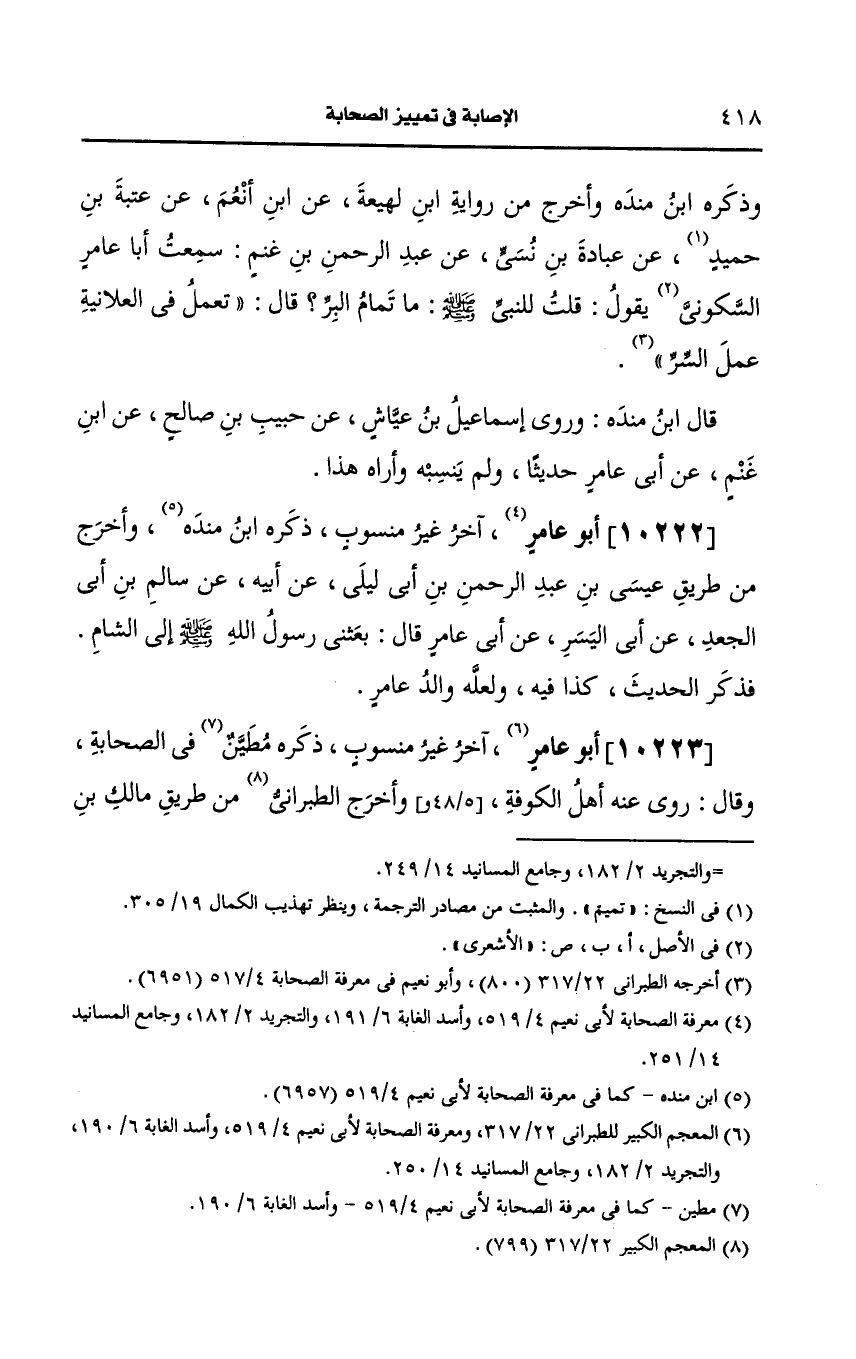 ٤١٨ الإصابة فى تمييز الصحابة
وذكَره ابنُ مندَه وأخرج من روايةِ ابنِ لهيعةَ ، عن ابنِ أَنْعُمَ ، عن عتبةَ بنِ
حميدٍ(١) ، عن عبادةَ بنِ نُسَىٍّ ، عن عبدِ الرحمنِ بنِ غنمٍ : سمِعتُ أبا عامرٍ
السَّكونىَّ(٢) يقولُ : قلتُ للنبىِّ ﷺ : ما تَمامُ البِرِّ ؟ قال : « تعملُ فى العلانيةِ
عملَ السِّرِّ »(٣) .
قال ابنُ مندَه : وروى إسماعيلُ بنُ عيَّاشٍ ، عن حبيبِ بنِ صالحٍ ، عن ابنِ
غَنْمٍ ، عن أبى عامرٍ حديثًا ، ولم يَنسِبْه وأراه هذا .
[١٠٢٢٢] أبو عامرٍ(٤) ، آخرُ غيرُ منسوبٍ ، ذكَره ابنُ مندَه(٥) ، وأخرَج
من طريقِ عيسَى بنِ عبدِ الرحمنِ بنِ أبى ليلَى ، عن أبيه ، عن سالمِ بنِ أبى
الجعدِ ، عن أبى اليَسَرِ ، عن أبى عامرٍ قال : بعَثنى رسولُ اللهِ ﷺ إلى الشامِ .
فذكَر الحديثَ ، كذا فيه ، ولعلَّه والدُ عامرٍ .
[١٠٢٢٣] أبو عامرٍ(٦) ، آخرُ غيرُ منسوبٍ ، ذكَره مُطَيَّنٌ(٧) فى الصحابةِ ،
وقال : روى عنه أهلُ الكوفةِ ، [٤٨/٥و] وأخرَج الطبرانىُّ(٨) من طريقِ مالكِ بنِ
=والتجريد ٢/ ١٨٢، وجامع المسانيد ١٤/ ٢٤٩.
(١) فى النسخ : « تميم » . والمثبت من مصادر الترجمة ، وينظر تهذيب الكمال ١٩/ ٣٠٥.
(٢) فى الأصل ، أ ، ب ، ص : « الأشعرى » .
(٣) أخرجه الطبرانى ٣١٧/٢٢ (٨٠٠) ، وأبو نعيم فى معرفة الصحابة ٥١٧/٤ (٦٩٥١) .
(٤) معرفة الصحابة لأبى نعيم ٤/ ٥١٩، وأسد الغابة ٦/ ١٩١، والتجريد ٢/ ١٨٢، وجامع المسانيد
١٤/ ٢٥١.
(٥) ابن منده - كما فى معرفة الصحابة لأبى نعيم ٥١٩/٤ (٦٩٥٧) .
(٦) المعجم الكبير للطبرانى ٢٢/ ٣١٧، ومعرفة الصحابة لأبى نعيم ٤/ ٥١٩، وأسد الغابة ٦/ ١٩٠،
والتجريد ٢/ ١٨٢، وجامع المسانيد ١٤/ ٢٥٠.
(٧) مطين - كما فى معرفة الصحابة لأبى نعيم ٥١٩/٤ - وأسد الغابة ٦/ ١٩٠.
(٨) المعجم الكبير ٣١٧/٢٢ (٧٩٩) .